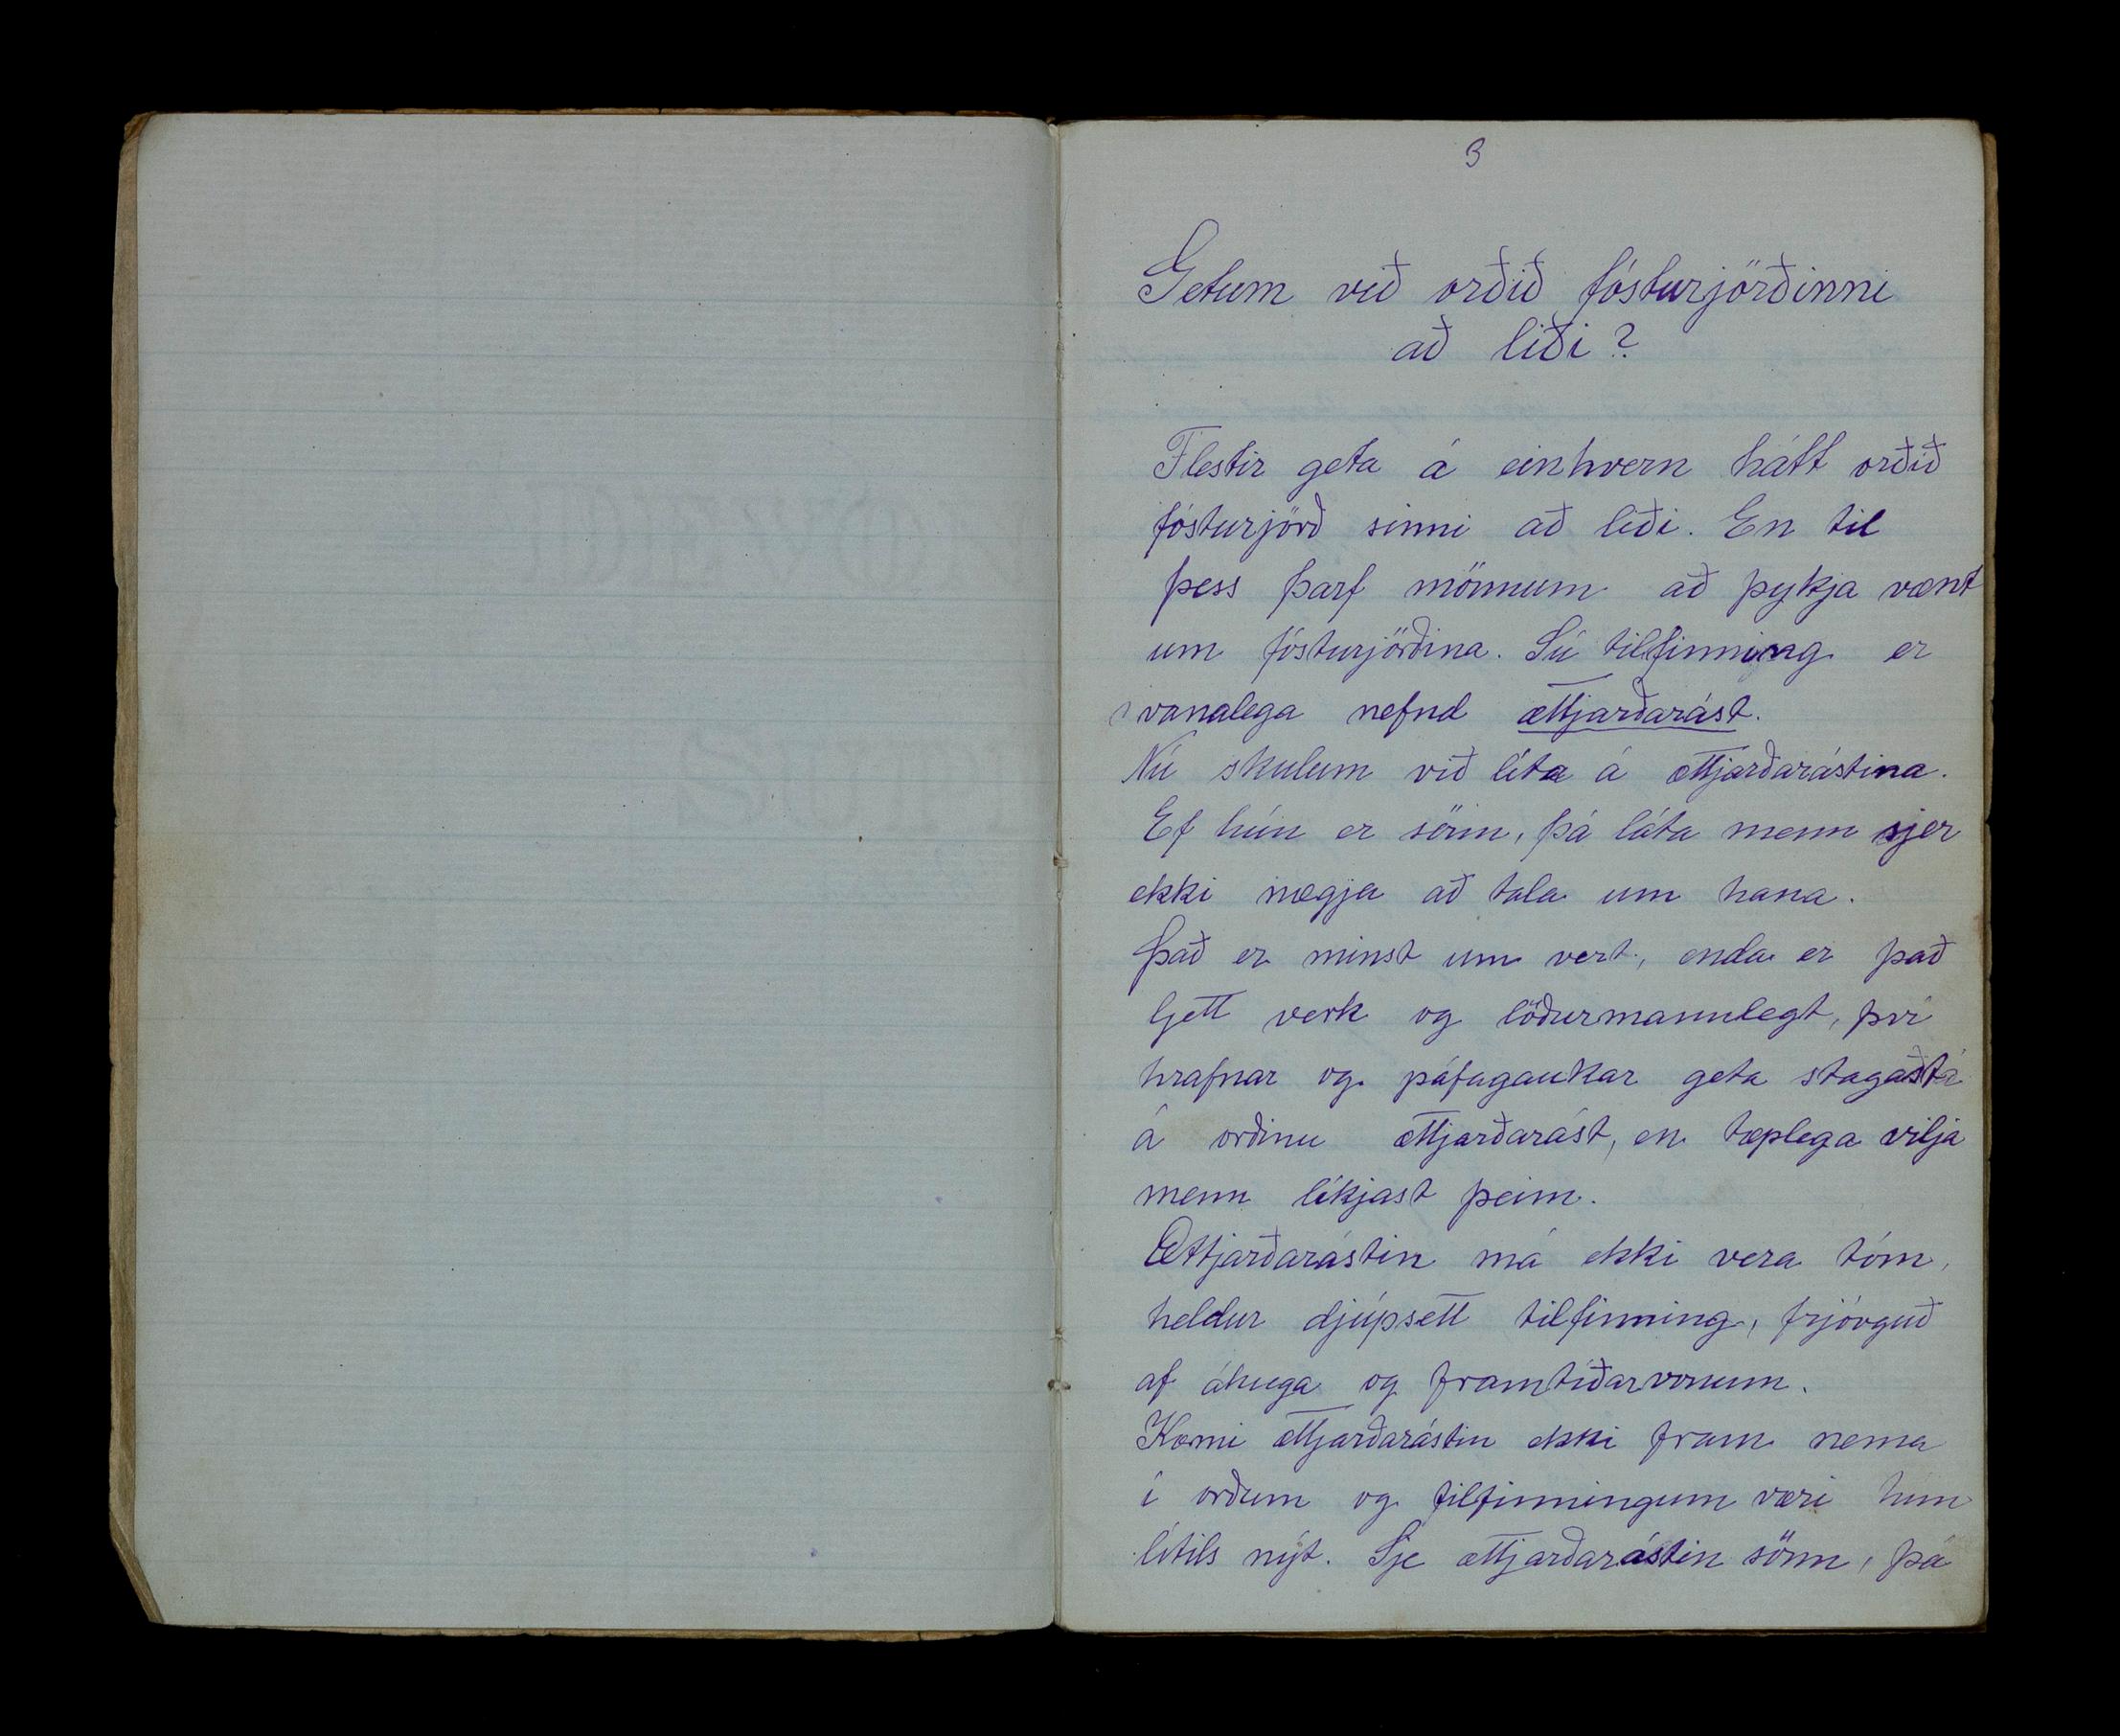 3
Getum við orðið fósturjörðinni
að liði?
Flestir geta á einhvern hátt orðið
fósturjörð sinni að liði. En til
þess þarf mönnum að þykja vænt
um fósturjörðina. Sú tilfinning er
vanalega nefnd ættjarðarást.
Nú skulum við líta á ættjarðarástina.
Ef hún er sönn, þá láta menn sjer
ekki nægja að tala um hana.
Það er minst um vert, enda er það
ljett verk og löðurmannlegt, því
hrafnar og páfagaukar geta stagast
á orðinu ættjarðarást, en tæplega vilja
menn líkjast þeim.
Ættjarðarástin má ekki vera tóm,
heldur djúpsett tilfinning, frjóvguð
af áhuga og framtíðarvonum.
Komi ættjarðarástin ekki fram nema
í orðum og tilfinningum væri hún
lítils nýt. Sje ættjarðarástin sönn, þá